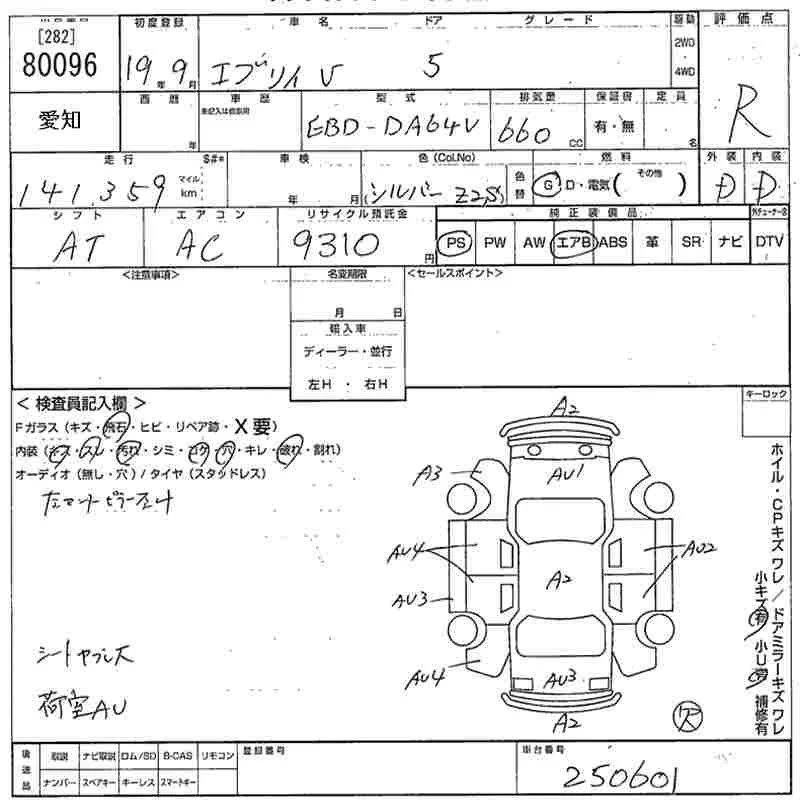 [282]
80096
愛知
初度登録
19年 9月
車名
エブリイ V
ドア
5
グレード
駆動
2WD
・
4WD
評価点
R
西暦
年
車歴
未記入は自家用
型式
EBD-DA64V
排気量
660 CC
保証書
有・無
定員
名
走行
141,359
マイル
km
S#*
車検
年 月
色(Col.No)
(シルバー Z2S)
色替
燃料
G D・電気( その他 )
外装
D
内装
D
シフト
AT
エアコン
AC
リサイクル預託金
9310 円
純正装備品
PS PW AW エアB ABS 革 SR ナビ
DTV
<注意事項>
名変期限
月 日
<セールスポイント>
輸入車
ディーラー・並行
左H ・ 右H
キーロック
< 検査員記入欄 >
Fガラス (キズ・飛石・ヒビ・リペア跡・X要)
内装 (キズ・スレ・汚れ・シミ・コゲ・穴・キレ・破れ・割れ)
オーディオ (無し・穴) / タイヤ (スタッドレス)
シートヤブレ大
荷室AU
A2
AU1
A3
AU4
AU2
A2
AU3
AU4
AU3
A2
欠
ホイル・CPキズ ワレ / ドアミラーキズ ワレ
小キズ有 小U有 補修有
後送品
取説 ナビ取説 ロム/SD B-CAS リモコン
ナンバー スペアキー キーレス スマートキー
登録番号
車台番号
250601